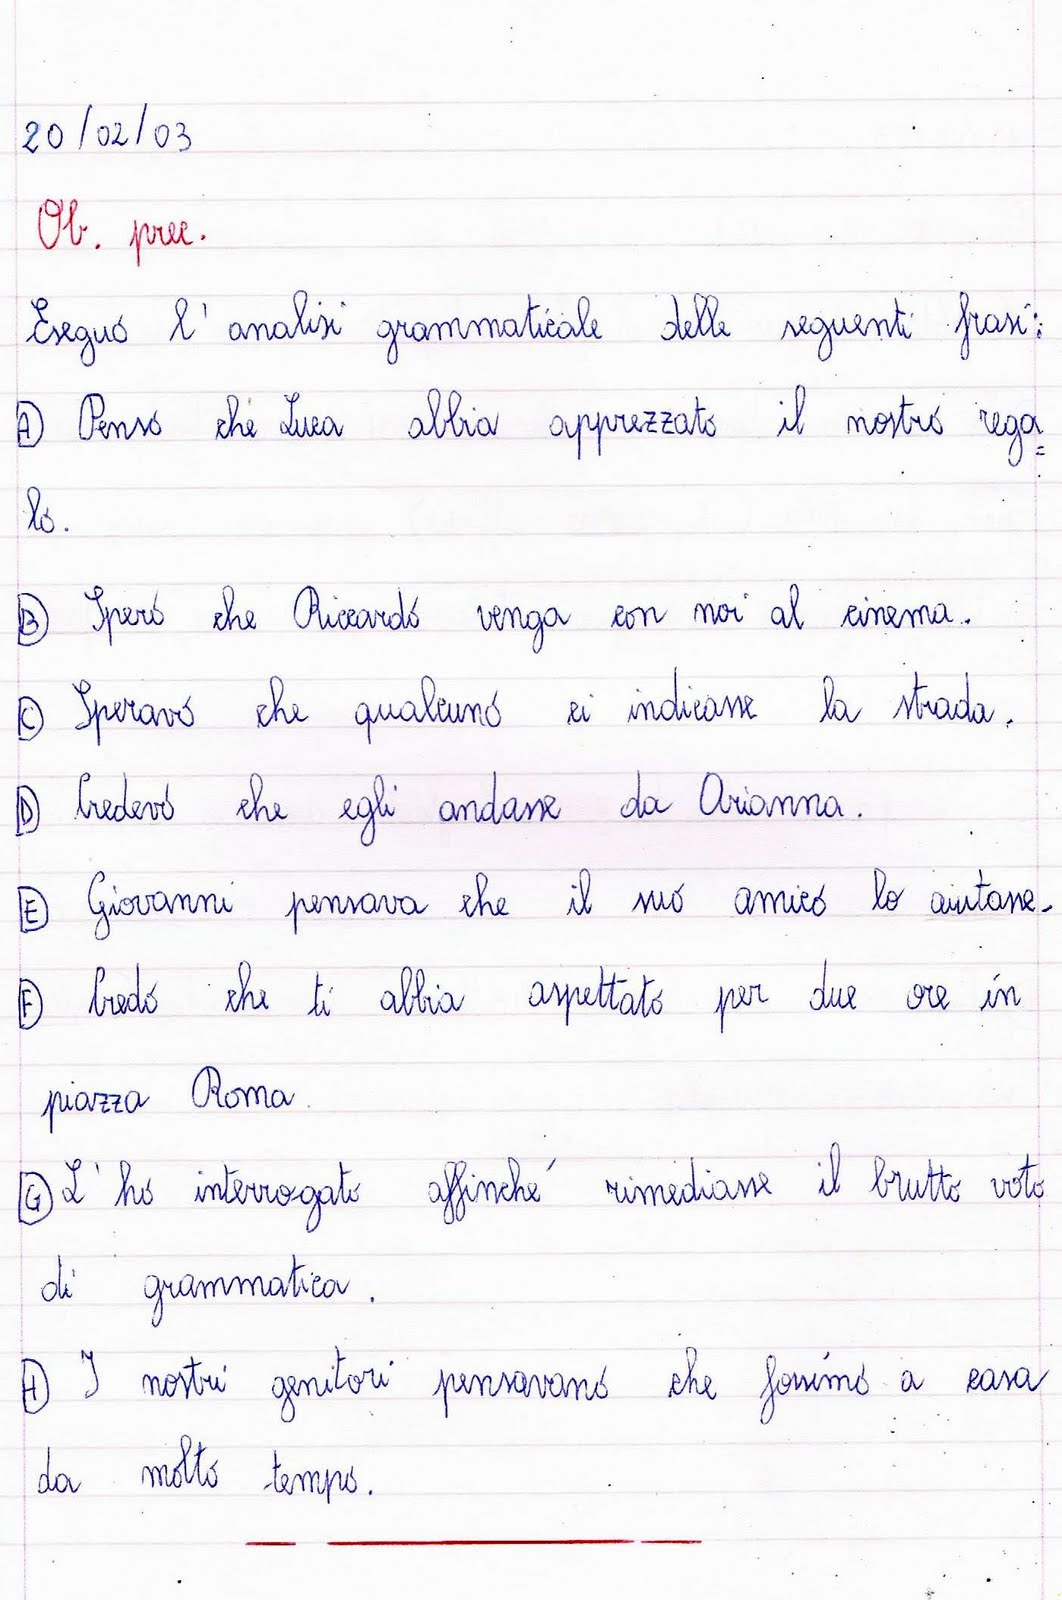 20/02/03
Ob. prec.
Eseguo l'analisi grammaticale delle seguenti frasi:
A Penso che Luca abbia apprezzato il nostro rega=
lo.
B Spero che Riccardo venga con noi al cinema.
C Speravo che qualcuno ci indicasse la strada.
D Credevo che egli andasse da Arianna.
E Giovanni pensava che il suo amico lo aiutasse.
F Credo che ti abbia aspettato per due ore in
piazza Roma.
G L'ho interrogato affinché rimediasse il brutto voto
di grammatica.
H I nostri genitori pensavano che fossimo a casa
da molto tempo.